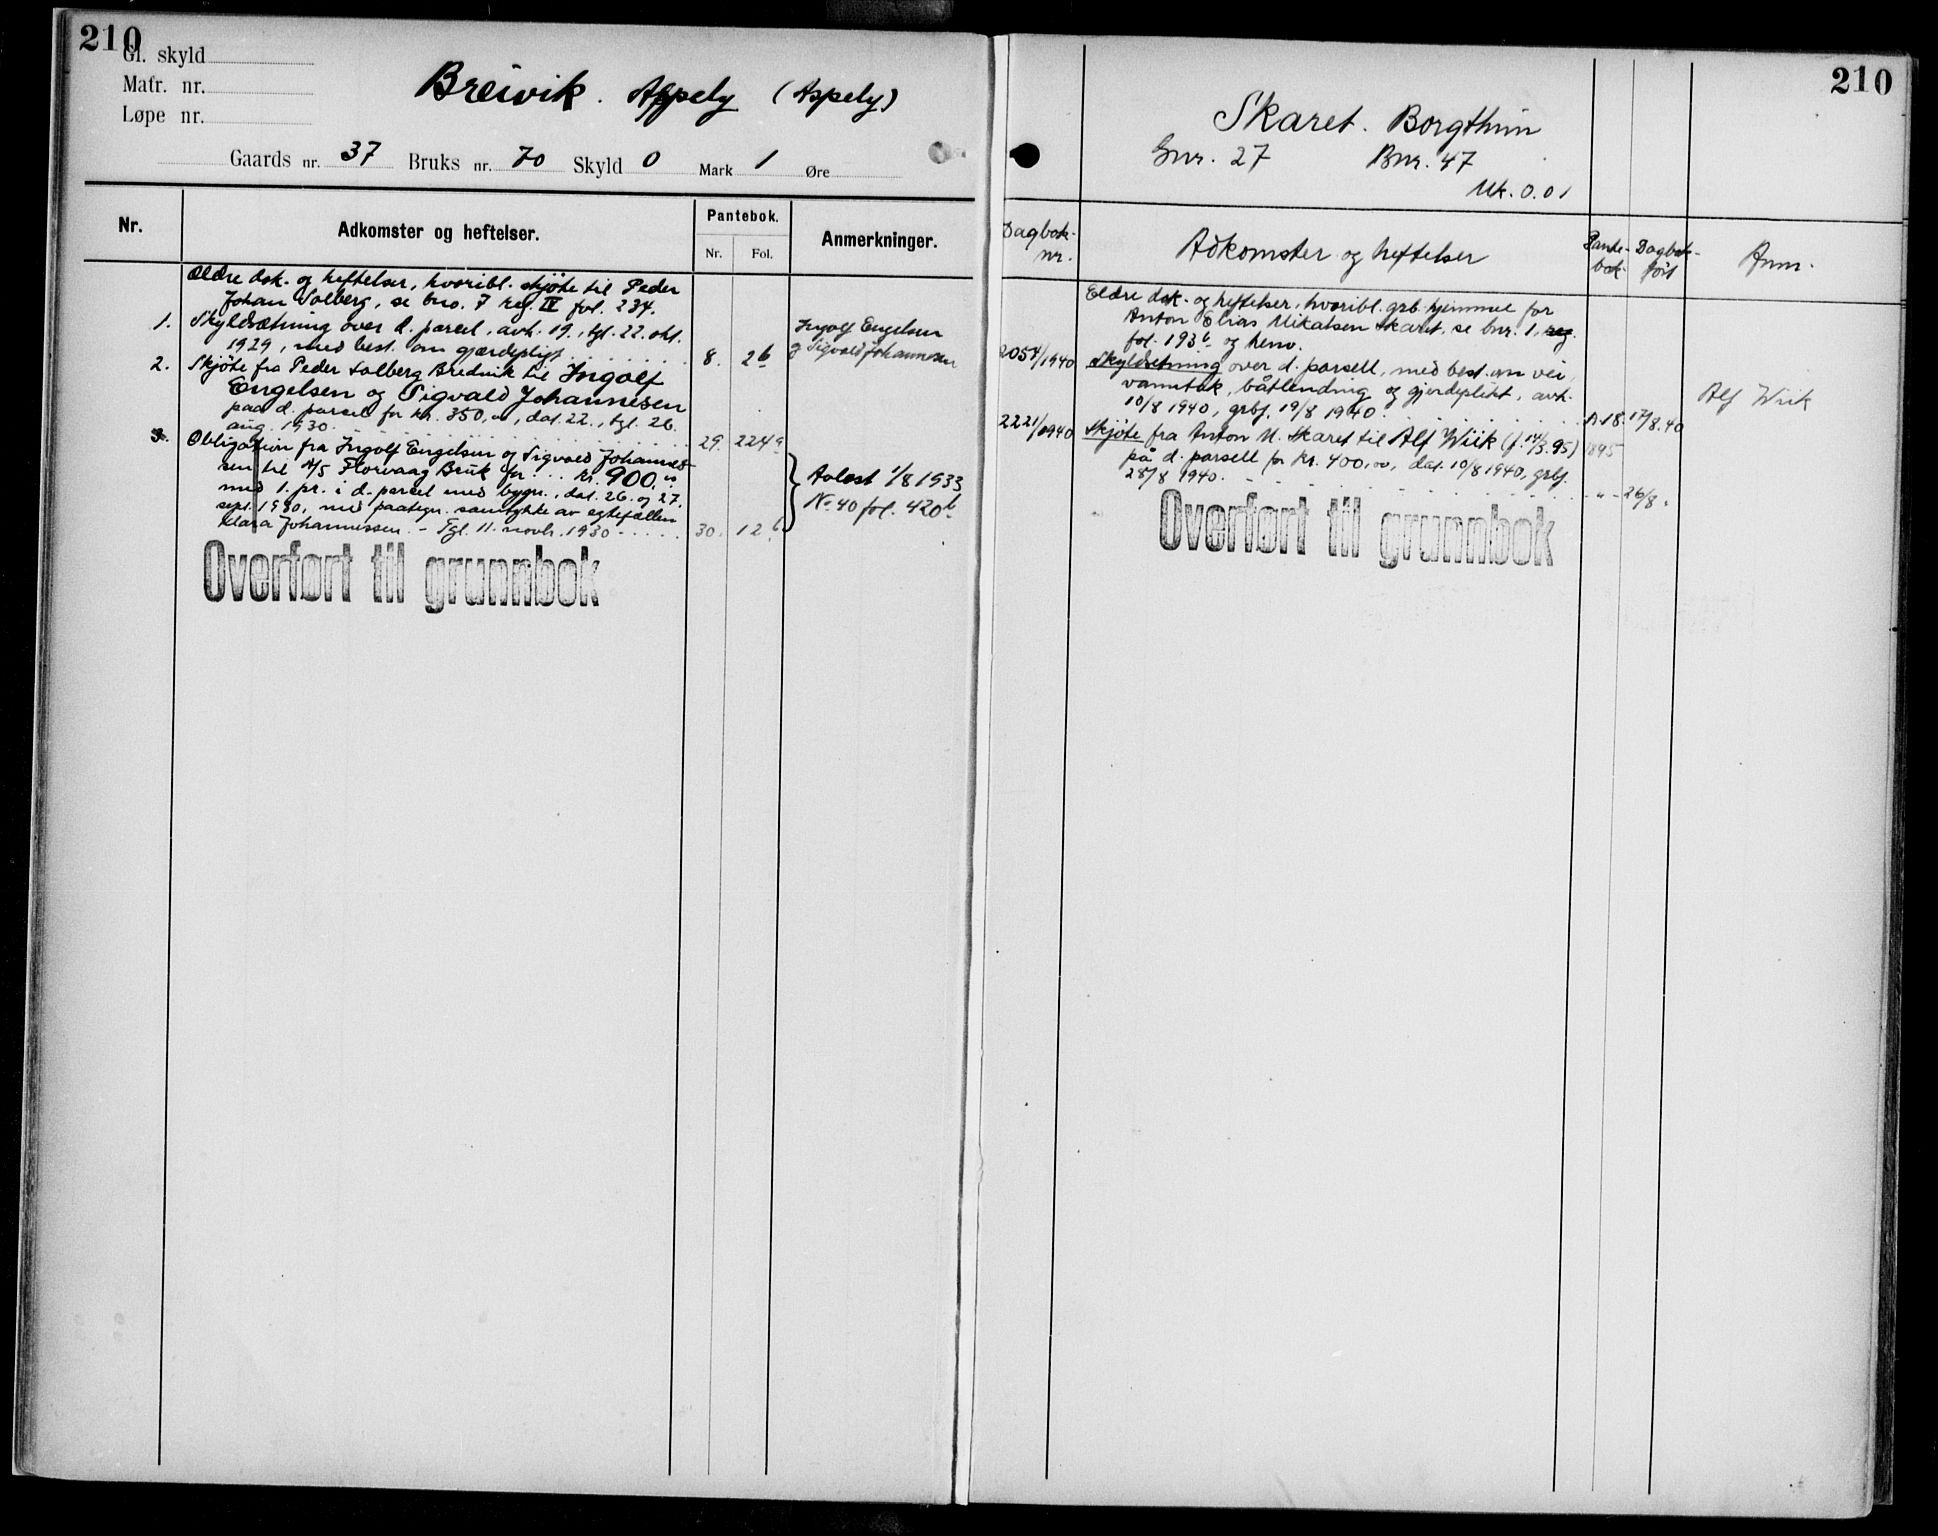 210
Gl. skyld
Matr. nr.
Løpe nr.
Breivik. Appely (Aspely)
Gaards nr. 37 Bruks nr. 70 Skyld 0 Mark 1 Øre
Nr.
Adkomster og heftelser.
Pantebok.
Nr. Fol.
Anmerkninger.
Ældre dok. og heftelser, hvoribl. skjøte til Peder
Johan Solberg, se bno. 7 reg. IV fol. 234.
1. Skyldsætning over d. parcel, avh. 19., tgl. 22. okt.
1929, med best. om gjærdepligt 8. 26
Ingolf Engelsen
og Sigvald Johannesen
2. Skjøte fra Peder Solberg Breivik til Ingolf
Engelsen og Sigvald Johannesen
paa d. parsel for kr. 350,00, dat. 22., tgl. 26.
aug. 1930. 29. 224a
3. Obligation fra Ingolf Engelsen og Sigvald Johannes-
sen til A/S Florvaag Bruk for ... kr. 900.00
med 1. pr. i d. parcel med bygn., dat. 26. og 27.
sept. 1930, med paategn. samtykke av egtefællen
Klara Johannessen. - Tgl. 11. novbr. 1930 30. 12b
Avlest 1/8 1933
No 40 fol. 420b
Overført til grunnbok
210
Skaret. Borgthun
Gnr. 27 Bnr. 47
Mk. 0.01
Dagbok-
nr.
Adkomster og heftelser
Pante-
bok
Dagbok-
ført
Anm.
Eldre dok. og heftelser, hvoribl. grb. hjemmel for
Anton Elias Mikalsen Skaret, se bnr. 1, reg.
fol. 193b og henv.
2054/1940 Skyldsetning over d. parsell, med best. om vei,
vanntak, båtlending og gjerdeplikt, avh.
10/8 1940, grbf. 19/8 1940. A.18. 17/8.40
Alf Wiik
2221/1940 Skjøte fra Anton M. Skaret til Alf Wiik (f. 14/3.95) 1895
på d. parsell for kr. 400,00, dat. 10/8 1940, grbf.
28/8 1940. - " - 26/8 "
Overført til grunnbok